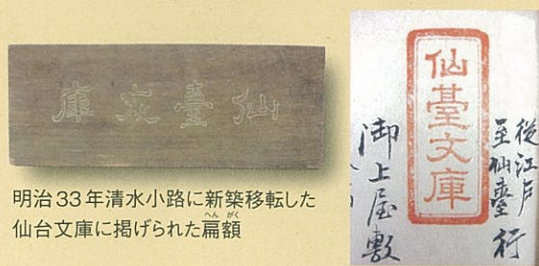 仙臺文庫
明治33年清水小路に新築移転した
仙台文庫に掲げられた扁額
へん がく
仙臺文庫
從江戸
至仙臺行
御上屋敷